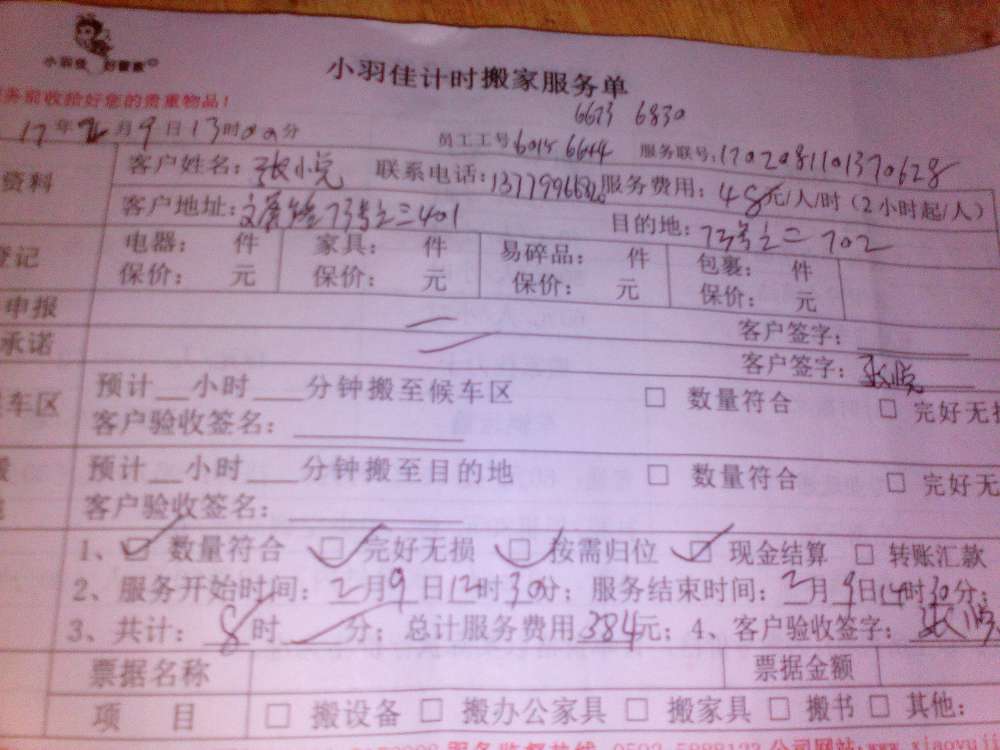 小羽佳 好管家
小羽佳计时搬家服务单
务前收拾好您的贵重物品!
6623 6830
17年2月9日13时00分 员工工号6015 6644 服务联号:1702081101370628
资料 客户姓名: 张小悦 联系电话: 服务费用: 48元/人/时(2小时起/人)
客户地址: 73号之三401 目的地: 73号之二 702
登记 电器: 件 家具: 件 易碎品: 件 包裹: 件
保价: 元 保价: 元 保价: 元 保价: 元
申报 客户签字:
承诺 客户签字: 张悦
车区 预计__小时___分钟搬至候车区 □ 数量符合 □ 完好无
客户验收签名:
预计__小时___分钟搬至目的地 □ 数量符合 □ 完好无
客户验收签名:
1、☑ 数量符合 ☑ 完好无损 ☑ 按需归位 ☑ 现金结算 □ 转账汇款
2、服务开始时间: 2月9日12时30分; 服务结束时间: 2月9日14时30分;
3、共计: 8时 分; 总计服务费用384元; 4、客户验收签字: 张悦
票据名称 票据金额
项 目 □ 搬设备 □ 搬办公家具 □ 搬家具 □ 搬书 □ 其他:
服务监督热线 公司网站: